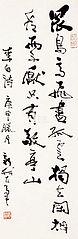 眾鳥高飛盡孤雲獨去閑相
看兩不厭只有敬亭山
李白詩